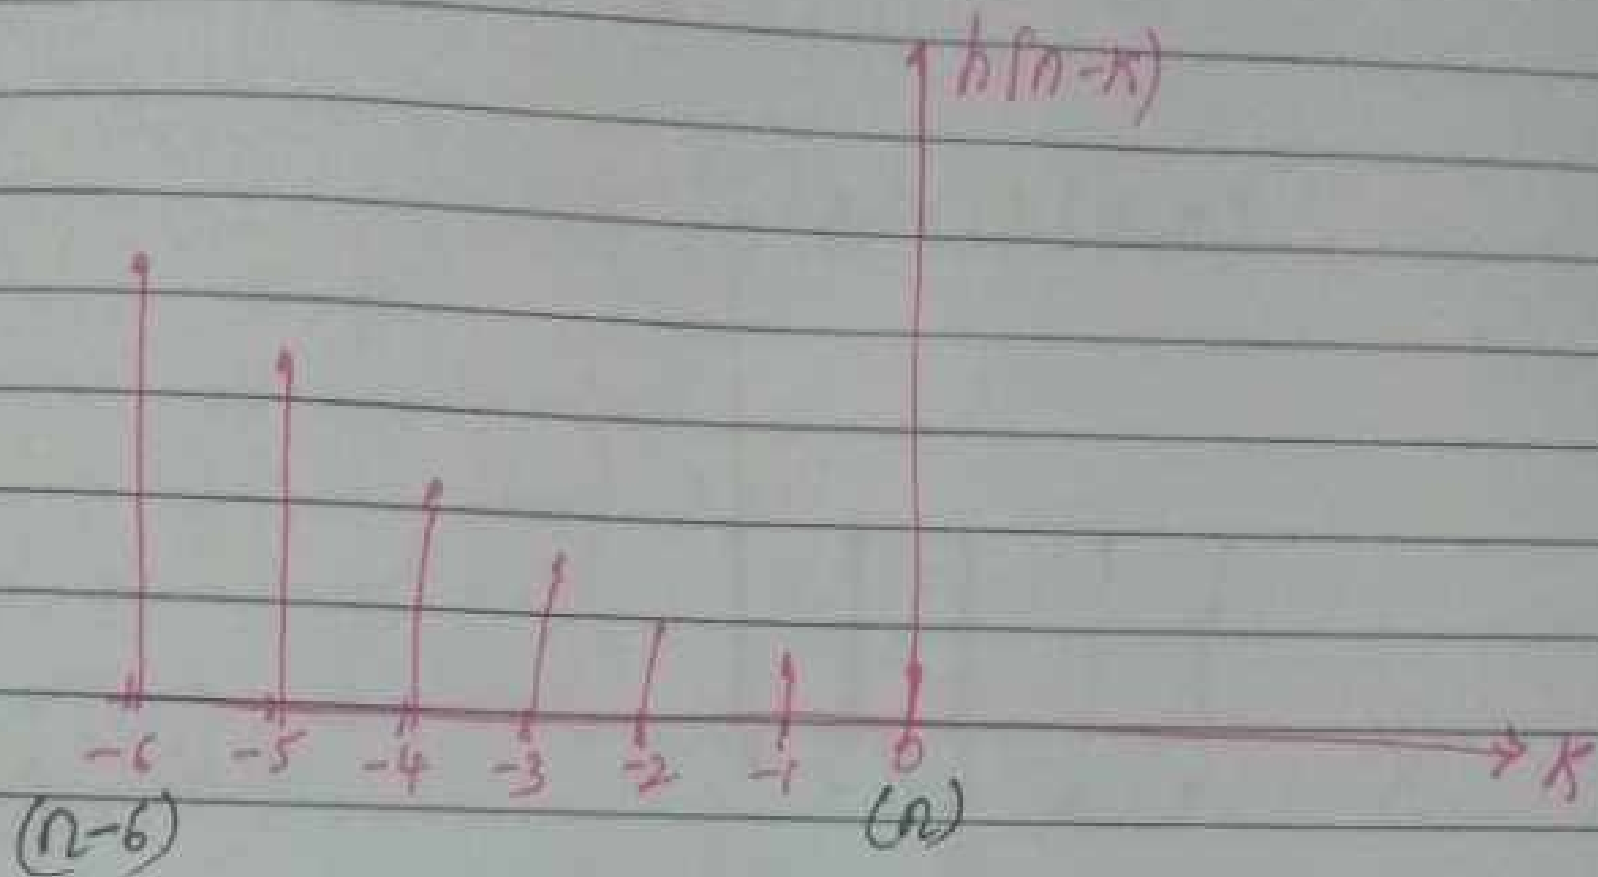 h(n-k)
-6 -5 -4 -3 -2 -1 0 k
(n-6) (n)